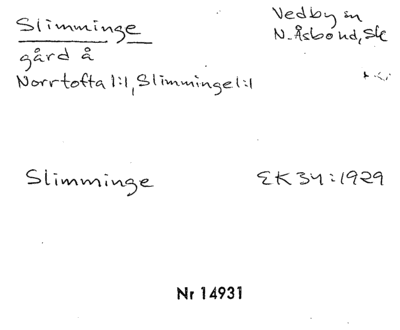 Slimminge
Vedby sn
gård å
N. Åsbo hd, Sk
Norrtofta 1:1, Slimminge 1:1
Slimminge
EK 34:1929
Nr 14931